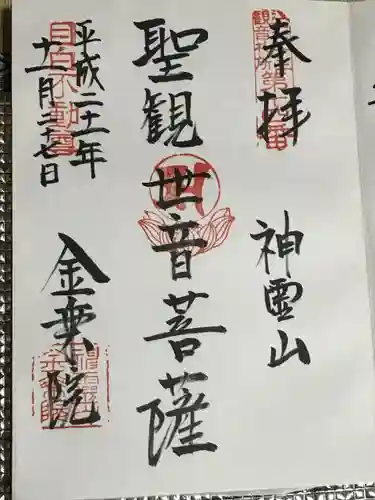 奉拝
神霊山
聖観世音菩薩
平成二十一年
十一月二十七日
目白不動尊
金乗院